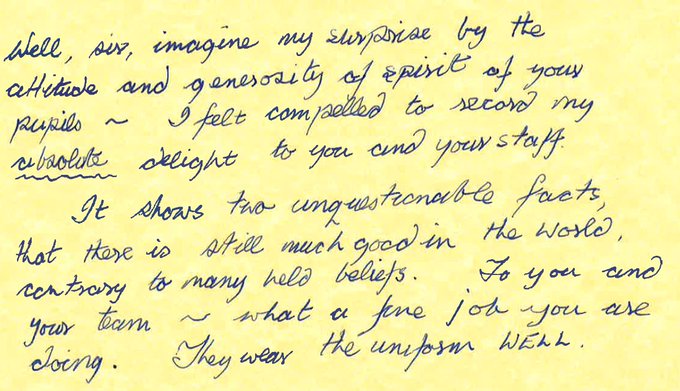 Well, sir, imagine my surprise by the
attitude and generosity of spirit of your
pupils ~ I felt compelled to record my
absolute delight to you and your staff.
It shows two unquestionable facts,
that there is still much good in the world,
contrary to many held beliefs. To you and
your team ~ what a fine job you are
doing. They wear the uniform WELL.